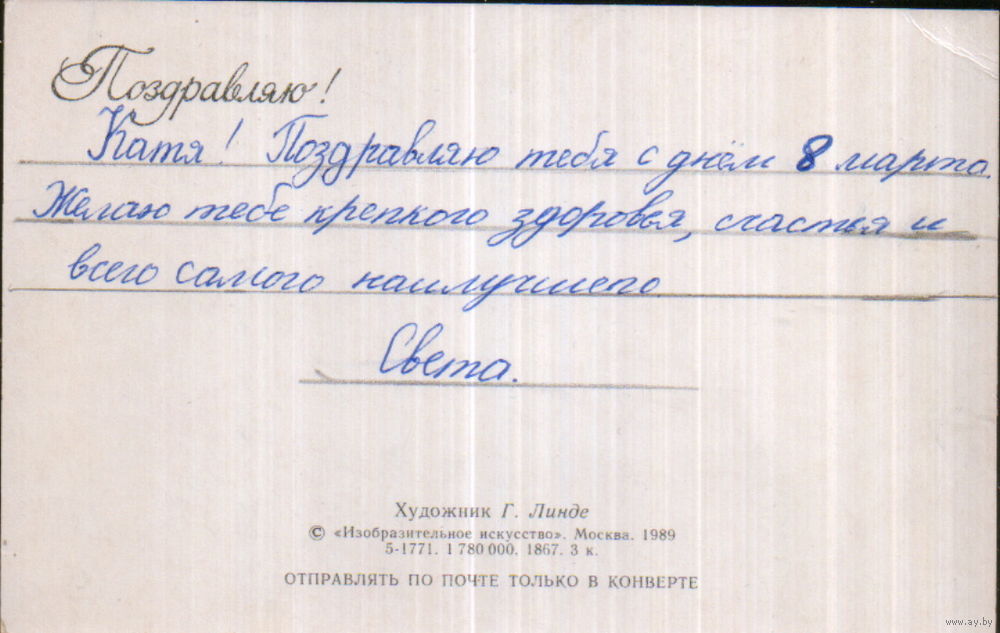 Поздравляю!
Катя! Поздравляю тебя с днём 8 марта.
Желаю тебе крепкого здоровья, счастья и
всего самого наилучшего
Света.
Художник Г. Линде
© «Изобразительное искусство». Москва. 1989
5-1771. 1 780 000. 1867. 3 к.
ОТПРАВЛЯТЬ ПО ПОЧТЕ ТОЛЬКО В КОНВЕРТЕ
www.ay.by